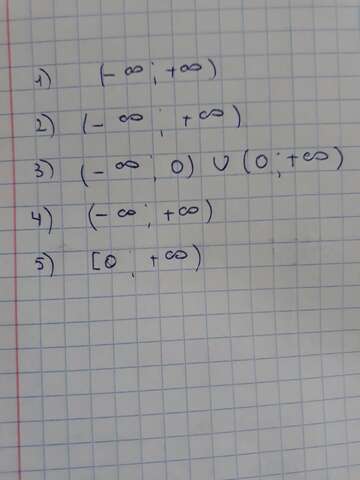 1) (- ∞ ; +∞)
2) (- ∞ ; +∞)
3) (- ∞ ; 0) ∪ (0 ; +∞)
4) (- ∞ ; +∞)
5) [0 ; +∞)